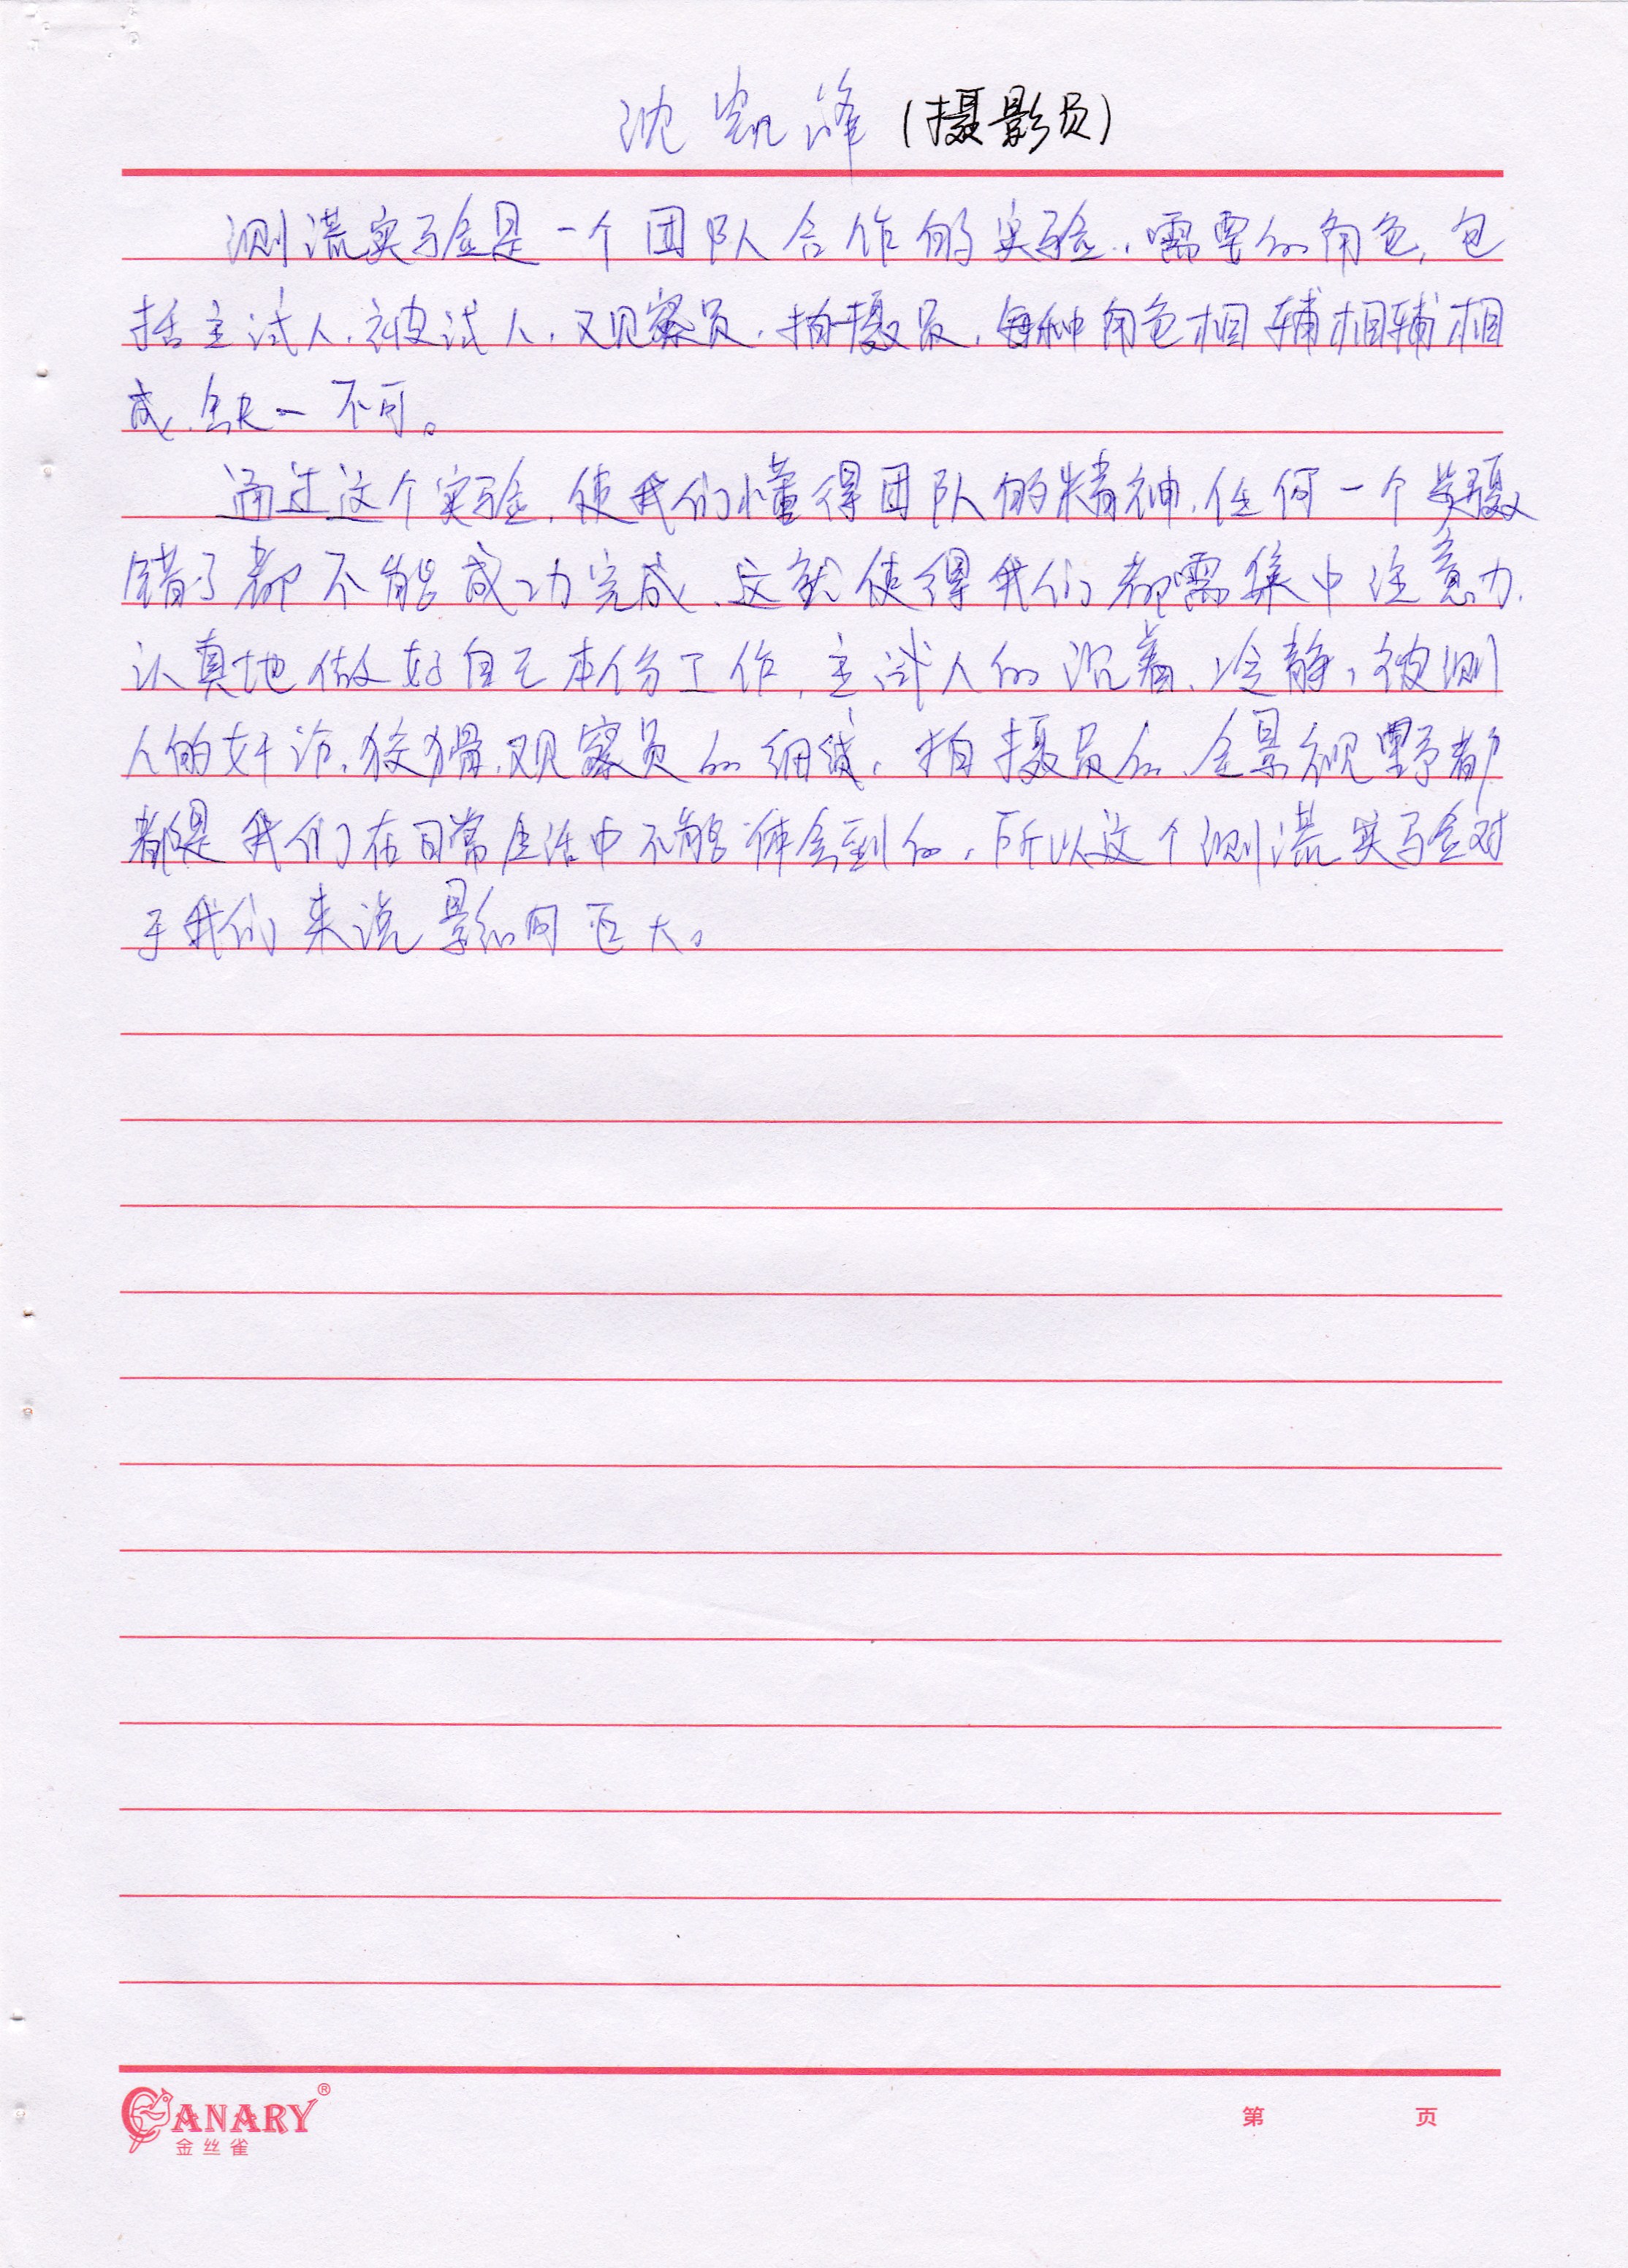 沈凯峰(摄影员)
测谎实验是一个团队合作的实验,需要的角色,包
括主试人,被试人,观察员,拍摄员,每种角色相辅相辅相
成,缺一不可。
通过这个实验,使我们懂得团队的精神,任何一个步骤
错了都不能成功完成,这就使得我们都需集中注意力,
认真地做好自己本份工作,主试人的沉着、冷静,被测
人的奸诈、狡猾,观察员的细致,拍摄员的全景视野都
都是我们在日常生活中不能体会到的,所以这个测谎实验对
于我们来说影响巨大。
CANARY®
金丝雀
第 页